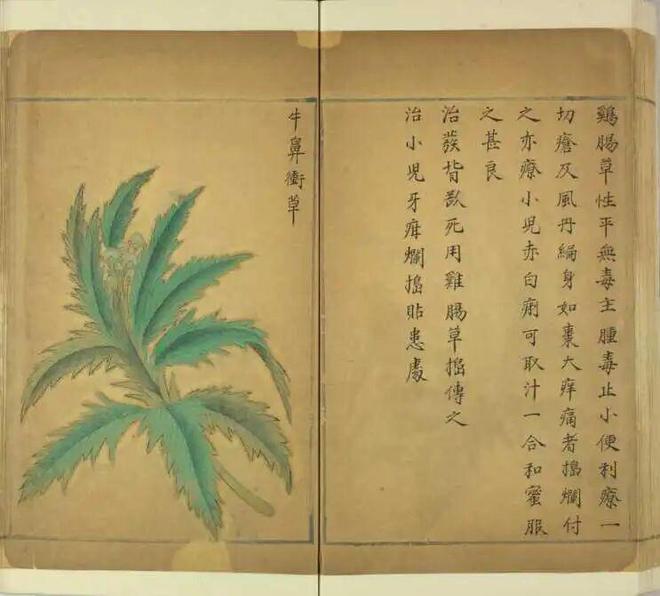 鷄腸草性平無毒主腫毒止小便利療一
切瘡及風丹綸身如棗大痒痛者搗爛付
之亦療小児赤白痢可取汁一合和蜜服
之甚良
治發背㱠死用雞腸草搗傅之
治小児牙疳爛搗貼患處
牛鼻衝草